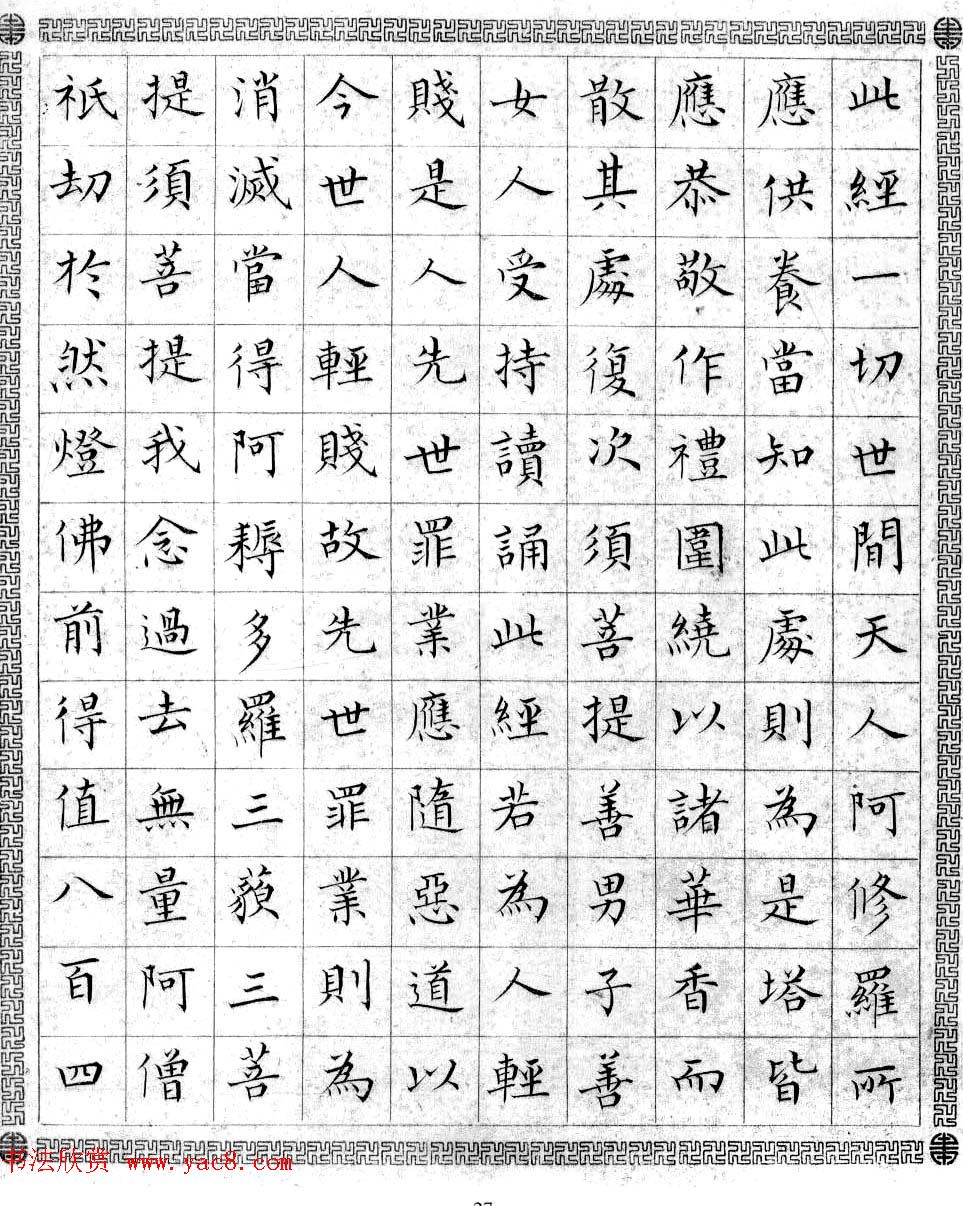 此經一切世間天人阿修羅所
應供養當知此處則為是塔皆
應恭敬作禮圍繞以諸華香而
散其處復次須菩提善男子善
女人受持讀誦此經若為人輕
賤是人先世罪業應隨惡道以
今世人輕賤故先世罪業則為
消滅當得阿耨多羅三藐三菩
提須菩提我念過去無量阿僧
祇劫於然燈佛前得值八百四
书法欣赏 www.yac8.com